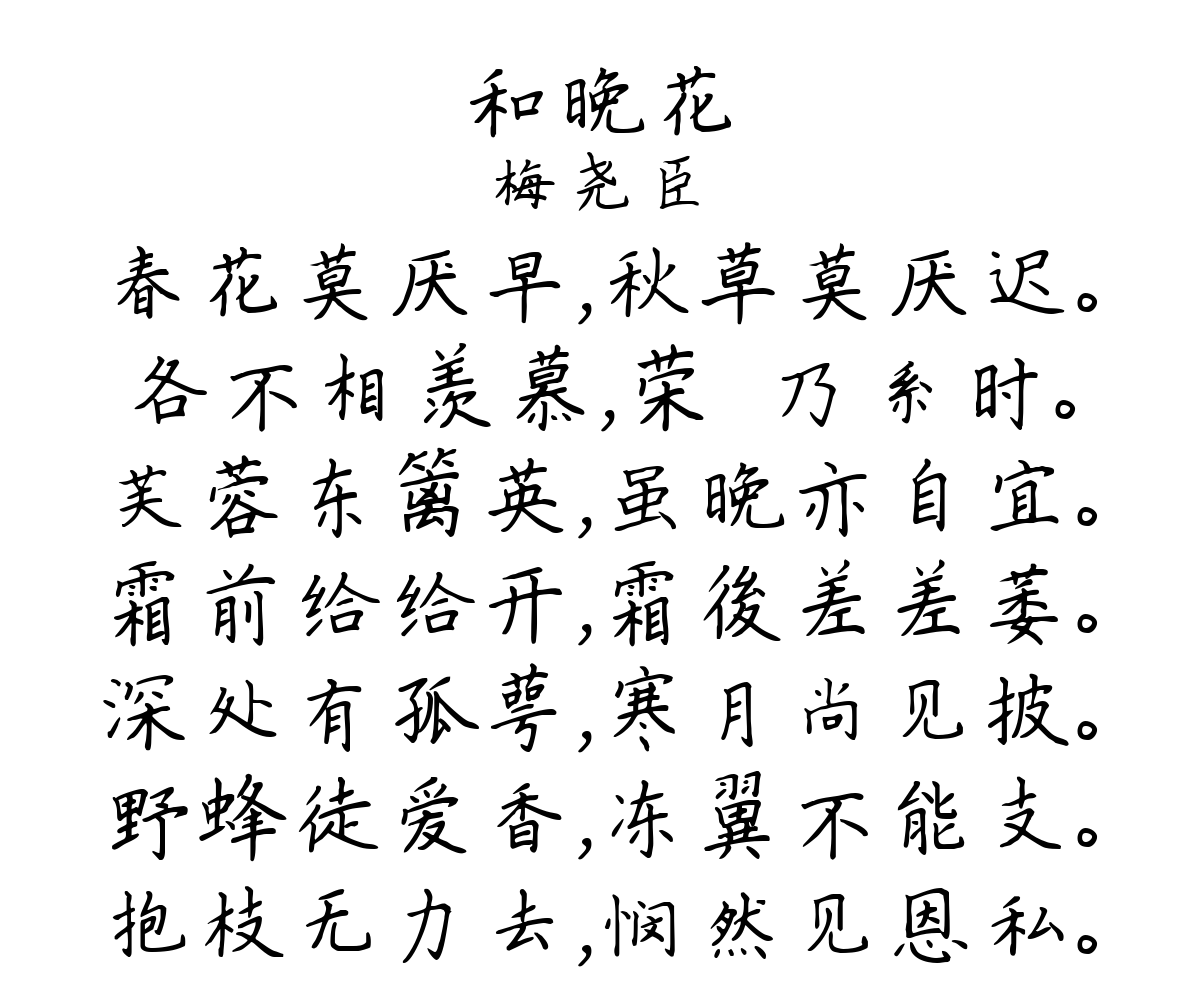 和晚花
梅尧臣
春花莫厌早,秋草莫厌迟。
各不相羡慕,荣 乃系时。
芙蓉东篱英,虽晚亦自宜。
霜前给给开,霜後差差萎。
深处有孤萼,寒月尚见披。
野蜂徒爱香,冻翼不能支。
抱枝无力去,悯然见恩私。